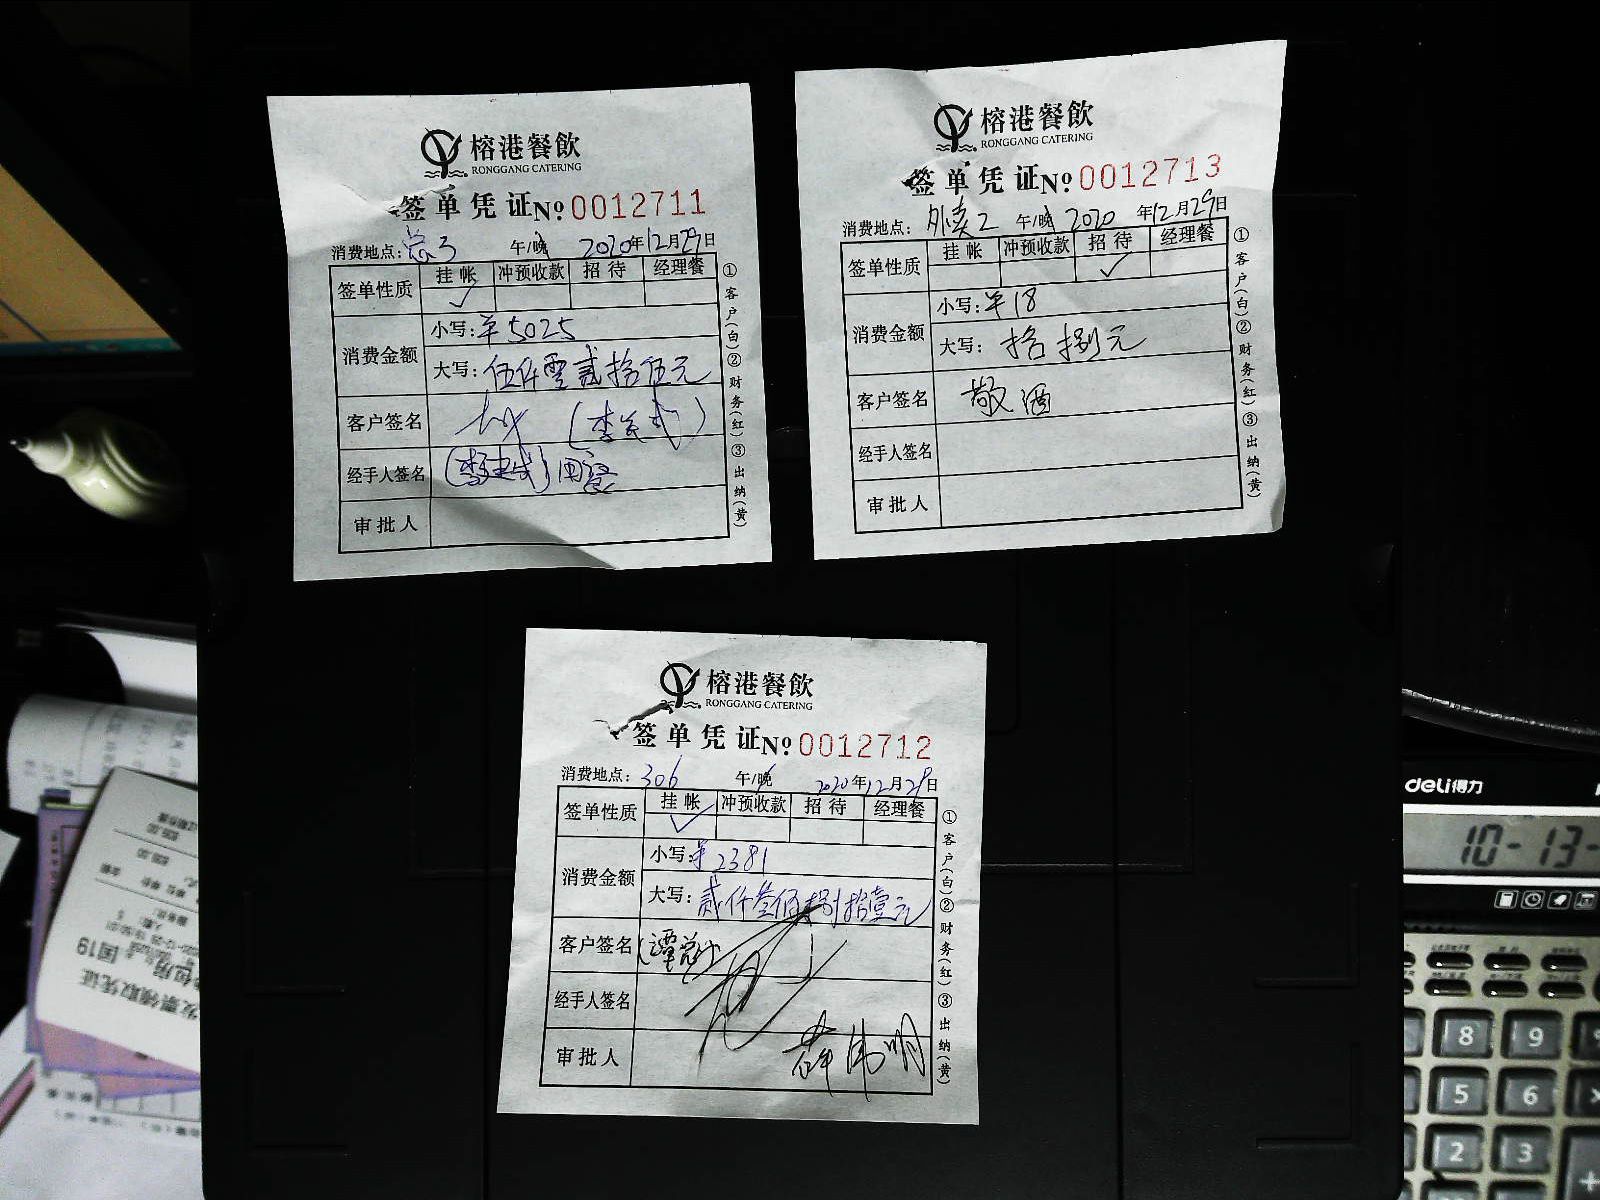 榕港餐飲
RONGGANG CATERING
签单凭证№ 0012711
消费地点: 午/晚 2020年12月29日
签单性质 挂帐 冲预收款 招待 经理餐
✓
消费金额 小写: 5025
大写: 伍仟零贰拾伍元
客户签名
经手人签名 用餐
审批人
①客户(白)②财务(红)③出纳(黄)
榕港餐飲
RONGGANG CATERING
签单凭证№ 0012713
消费地点: 外卖2 午/晚 2020年12月29日
签单性质 挂帐 冲预收款 招待 经理餐
✓
消费金额 小写: 18
大写: 拾捌元
客户签名 敬酒
经手人签名
审批人
①客户(白)②财务(红)③出纳(黄)
榕港餐飲
RONGGANG CATERING
签单凭证№ 0012712
消费地点: 306 午/晚 2020年12月29日
签单性质 挂帐 冲预收款 招待 经理餐
✓
消费金额 小写: 2381
大写: 贰仟叁佰捌拾壹元
客户签名 (谭总)
经手人签名
审批人 薛伟明
①客户(白)②财务(红)③出纳(黄)
deli得力
10-13-
8 9
5 6
2 3
国19
发票领取凭证